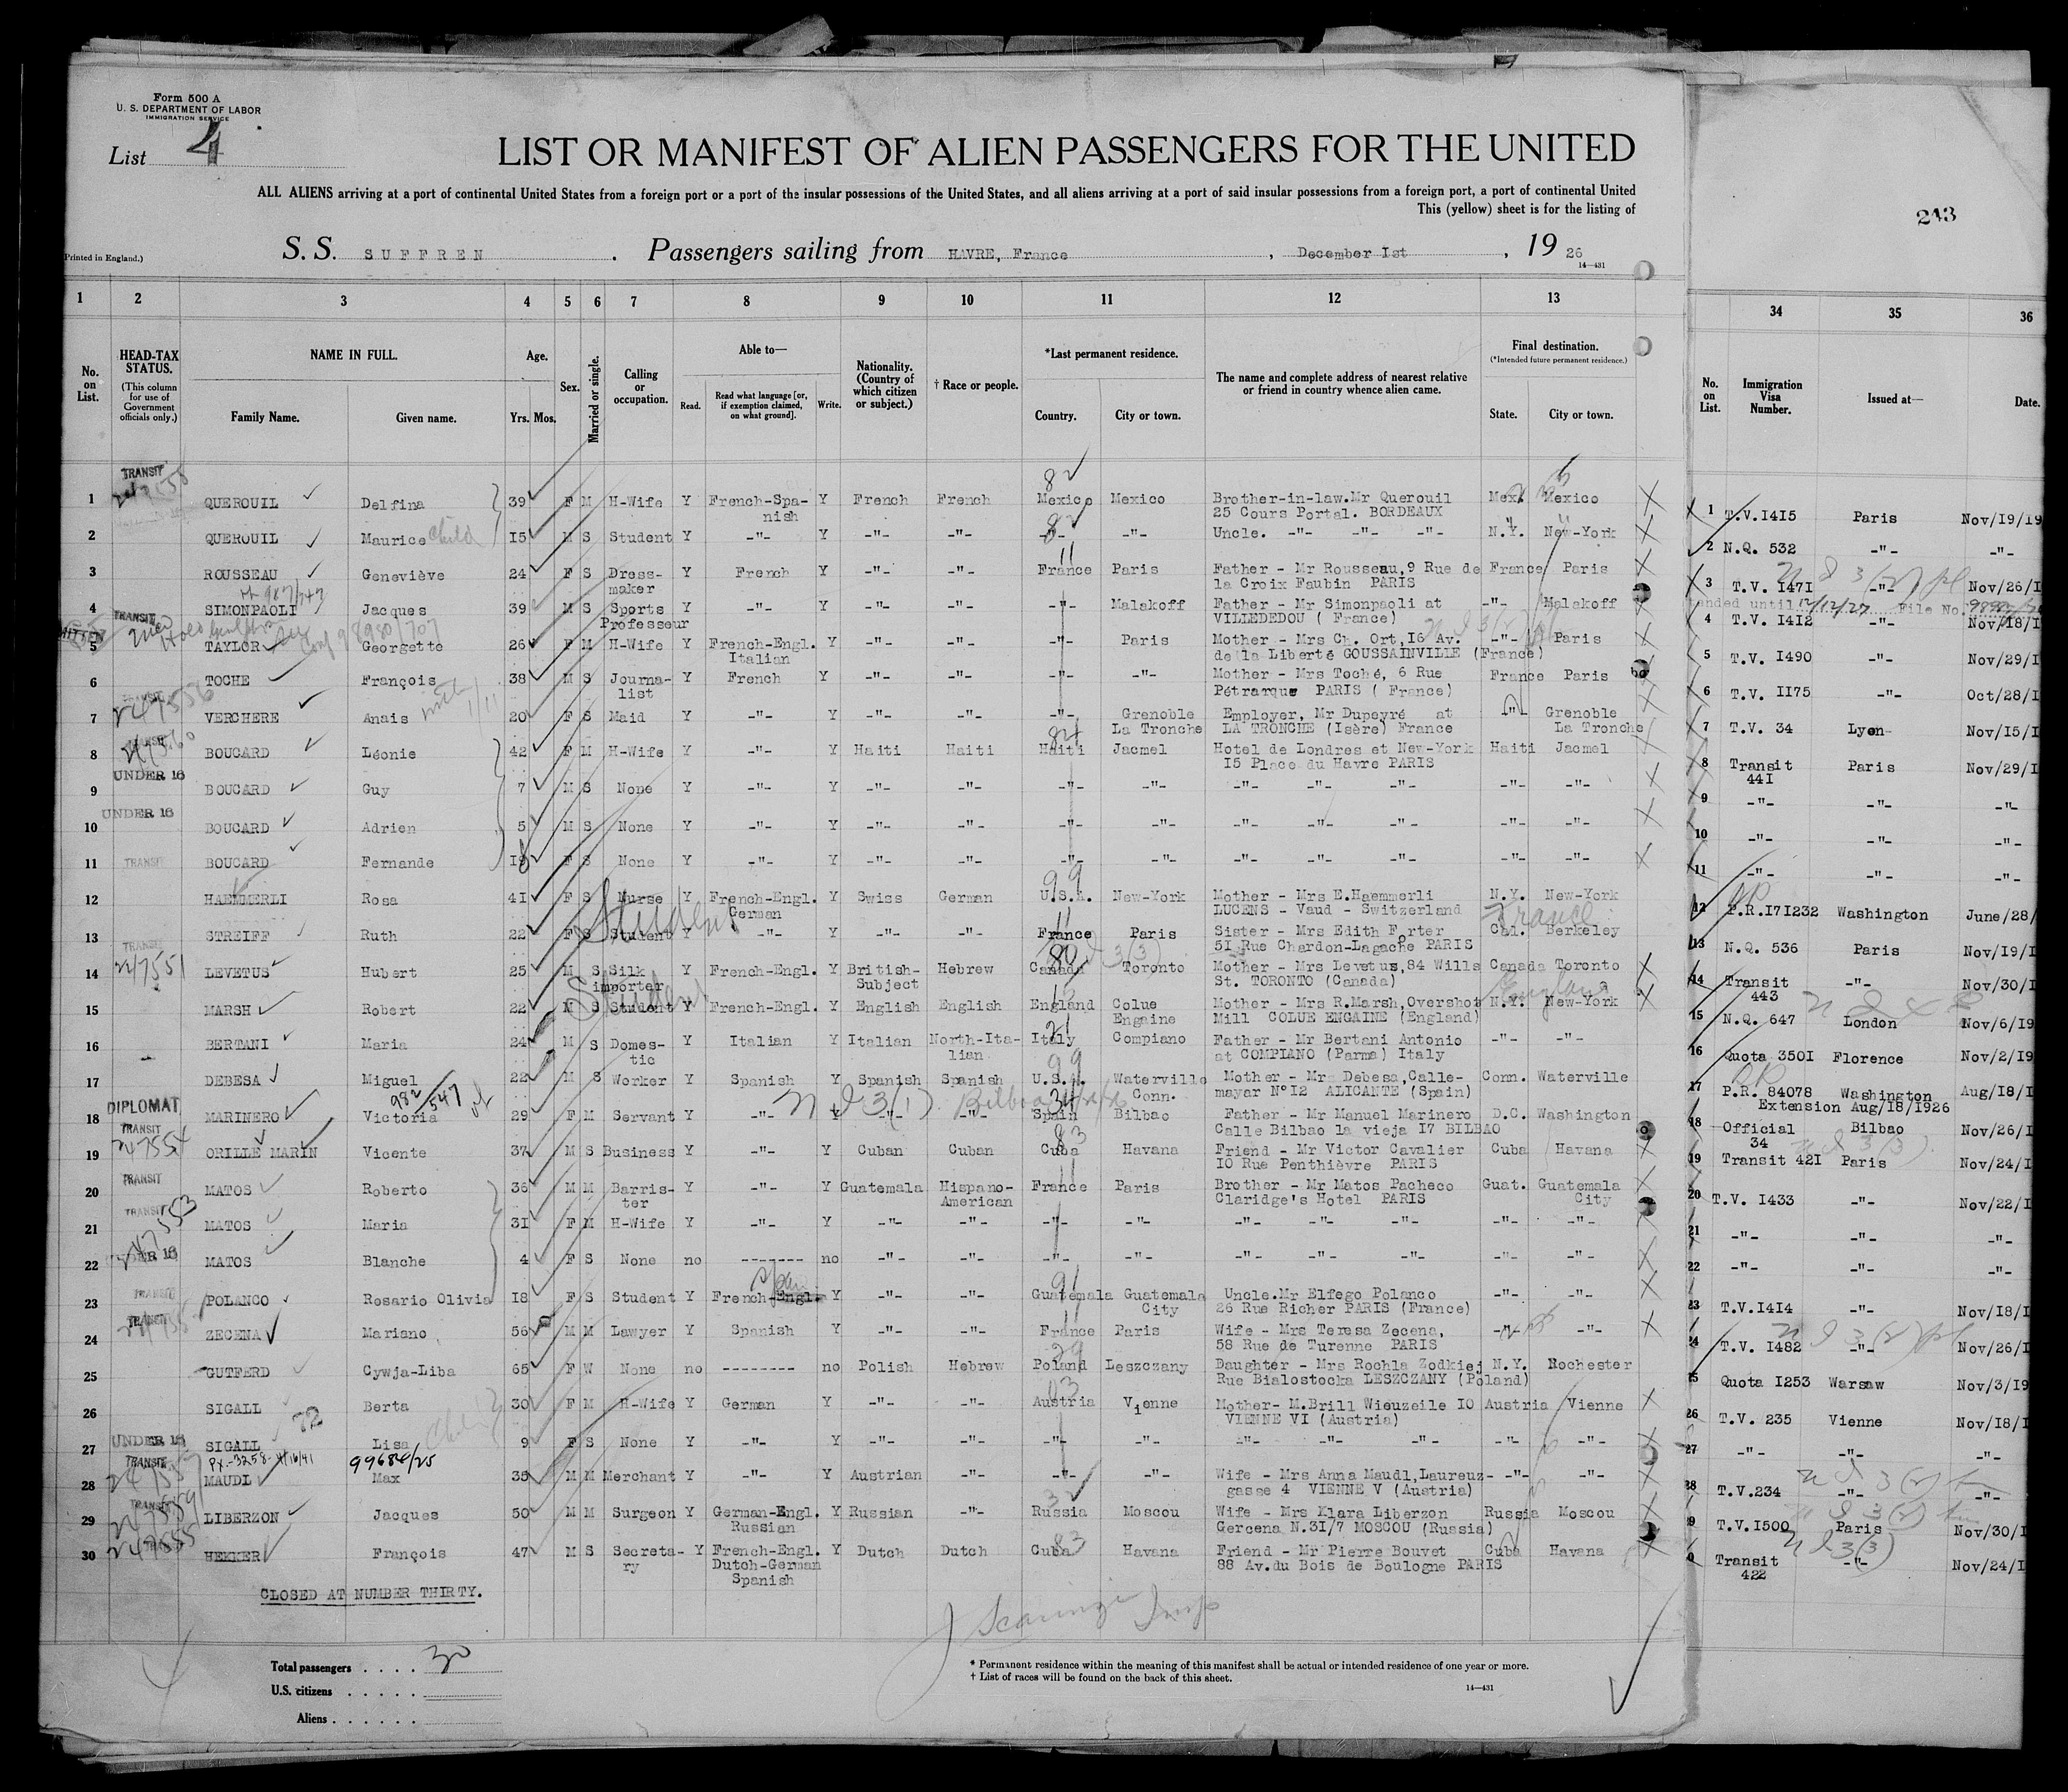 Form 500 A
U. S. DEPARTMENT OF LABOR
IMMIGRATION SERVICE
List 4
LIST OR MANIFEST OF ALIEN PASSENGERS FOR THE UNITED
ALL ALIENS arriving at a port of continental United States from a foreign port or a port of the insular possessions of the United States, and all aliens arriving at a port of said insular possessions from a foreign port, a port of continental United
This (yellow) sheet is for the listing of
243
Printed in England.)
S. S. SUFFREN . Passengers sailing from HAVRE, France , December 1st , 19 26
14—431
1 2 3 4 5 6 7 8 9 10 11 12 13 34 35 36
No. on List.
HEAD-TAX STATUS.
(This column for use of Government officials only.)
NAME IN FULL.
Family Name. Given name.
Age.
Yrs. Mos.
Sex.
Married or single.
Calling or occupation.
Able to—
Read. Read what language [or, if exemption claimed, on what ground]. Write.
Nationality. (Country of which citizen or subject.)
† Race or people.
*Last permanent residence.
Country. City or town.
The name and complete address of nearest relative or friend in country whence alien came.
Final destination.
(*Intended future permanent residence.)
State. City or town.
No. on List.
Immigration Visa Number.
Issued at—
Date.
TRANSIT
82
1 QUEROUIL Delfina 39 F M H-Wife Y French-Spa- Y French French Mexico Mexico Brother-in-law.Mr Querouil Mex. Mexico 1 T.V.1415 Paris Nov/19/19
nish 25 Cours Portal. BORDEAUX
2 QUEROUIL Maurice Child 15 M S Student Y -"- Y -"- -"- -"- -"- Uncle. -"- -"- -"- N.Y. New-York 2 N.Q. 532 -"- -"-
3 ROUSSEAU Geneviève 24 F S Dress- Y French Y -"- -"- France Paris Father - Mr Rousseau,9 Rue de France Paris 3 T.V. 1471 -"- Nov/26/1
maker la Croix Faubin PARIS
4 SIMONPAOLI Jacques 39 M S Sports Y -"- Y -"- -"- -"- Malakoff Father - Mr Simonpaoli at -"- Malakoff 4 T.V. 1412 -"- Nov/18/1
TRANSIT Professeur VILLEDEDOU ( France)
5 TAYLOR Georgette 26 F M H-Wife Y French-Engl. Y -"- -"- -"- Paris Mother - Mrs Ch. Ort,16 Av. -"- Paris 5 T.V. 1490 -"- Nov/29/1
Italian de la Liberté GOUSSAINVILLE (France)
6 TOCHE François 38 M S Journa- Y French Y -"- -"- -"- -"- Mother - Mrs Toché, 6 Rue France Paris 6 T.V. 1175 -"- Oct/28/1
list Pétrarque PARIS ( France)
TRANSIT
7 VERCHERE Anais 20 F S Maid Y -"- Y -"- -"- -"- Grenoble Employer, Mr Dupeyré at -"- Grenoble 7 T.V. 34 Lyon Nov/15/1
La Tronche LA TRONCHE (Isère) France La Tronche
8 BOUCARD Léonie 42 F M H-Wife Y -"- Y Haiti Haiti Haiti Jacmel Hotel de Londres et New-York Haiti Jacmel 8 Transit Paris Nov/29/1
15 Place du Havre PARIS 441
UNDER 16
9 BOUCARD Guy 7 M S None Y -"- Y -"- -"- -"- -"- -"- -"- -"- -"- -"- 9 -"- -"- -"-
UNDER 16
10 BOUCARD Adrien 5 M S None Y -"- Y -"- -"- -"- -"- -"- -"- -"- -"- -"- 10 -"- -"- -"-
11 TRANSIT BOUCARD Fernande 18 F S None Y -"- Y -"- -"- -"- -"- -"- -"- -"- -"- -"- 11 -"- -"- -"-
99
12 HAEMMERLI Rosa 41 F S Nurse Y French-Engl. Y Swiss German U.S.A. New-York Mother - Mrs E.Haemmerli N.Y. New-York 12 P.R.171232 Washington June/28/
German LUCENS - Vaud - Switzerland
Student France
13 STREIFF Ruth 22 F S Student Y -"- Y -"- -"- France Paris Sister - Mrs Edith Forter Cal. Berkeley 13 N.Q. 536 Paris Nov/19/1
51 Rue Chardon-Lagache PARIS
TRANSIT
14 247551 LEVETUS Hubert 25 M S Silk Y French-Engl. Y British- Hebrew Canada Toronto Mother - Mrs Levetus,84 Wills Canada Toronto 14 Transit -"- Nov/30/1
importer Subject St. TORONTO (Canada) 443
Student England
15 MARSH Robert 22 M S Student Y French-Engl. Y English English England Colue Mother - Mrs R.Marsh,Overshot N.Y. New-York 15 N.Q. 647 London Nov/6/19
Engaine Mill COLUE ENGAINE (England)
16 BERTANI Maria 24 M S Domes- Y Italian Y Italian North-Ita- Italy Compiano Father - Mr Bertani Antonio -"- -"- 16 Quota 3501 Florence Nov/2/19
tic lian at COMPIANO (Parma) Italy
99
17 DEBESA Miguel 22 M S Worker Y Spanish Y Spanish Spanish U.S.A. Waterville Mother - Mrs Debesa,Calle- Conn. Waterville 17 P.R. 84078 Washington Aug/18/1
Conn. mayar N°12 ALICANTE (Spain) Extension Aug/18/1926
DIPLOMAT 982/547
18 MARINERO Victoria 29 F M Servant Y -"- Y -"- -"- Spain Bilbao Father - Mr Manuel Marinero D.C. Washington 18 Official Bilbao Nov/26/1
Calle Bilbao la vieja 17 BILBAO 34
TRANSIT
19 247554 ORILLE MARIN Vicente 37 M S Business Y -"- Y Cuban Cuban Cuba Havana Friend - Mr Victor Cavalier Cuba Havana 19 Transit 421 Paris Nov/24/1
10 Rue Penthièvre PARIS
TRANSIT
20 MATOS Roberto 36 M M Barris- Y -"- Y Guatemala Hispano- France Paris Brother - Mr Matos Pacheco Guat. Guatemala 20 T.V. 1433 -"- Nov/22/1
ter American Claridge's Hotel PARIS City
TRANSIT
21 MATOS Maria 31 F M H-Wife Y -"- Y -"- -"- -"- -"- -"- -"- -"- -"- -"- 21 -"- -"- -"-
UNDER 16
22 MATOS Blanche 4 F S None no ------- no -"- -"- -"- -"- -"- -"- -"- -"- -"- 22 -"- -"- -"-
TRANSIT
23 POLANCO Rosario Olivia 18 F S Student Y French-Engl. Y -"- -"- Guatemala Guatemala Uncle.Mr Elfego Polanco -"- -"- 23 T.V.1414 -"- Nov/18/1
City 26 Rue Richer PARIS (France)
TRANSIT
24 ZECENA Mariano 56 M M Lawyer Y Spanish Y -"- -"- France Paris Wife - Mrs Teresa Zecena, -"- -"- 24 T.V. 1482 -"- Nov/26/1
58 Rue de Turenne PARIS
25 GUTFERD Cywja-Liba 65 F W None no -------- no Polish Hebrew Poland Leszczany Daughter - Mrs Rochla Zodkiej N.Y. Rochester 25 Quota 1253 Warsaw Nov/3/19
Rue Bialostocka LESZCZANY (Poland)
26 SIGALL Berta 30 F M H-Wife Y German Y -"- -"- Austria Vienne Mother- M.Brill Wieuzeile 10 Austria Vienne 26 T.V. 235 Vienne Nov/18/1
VIENNE VI (Austria)
UNDER 16
27 SIGALL Lisa 9 F S None Y -"- Y -"- -"- -"- -"- -"- -"- -"- -"- -"- 27 -"- -"- -"-
TRANSIT 99686/25
28 MAUDL Max 35 M M Merchant Y -"- Y Austrian -"- -"- -"- Wife - Mrs Anna Maudl,Laureuz- -"- -"- 28 T.V.234 -"- -"-
gasse 4 VIENNE V (Austria)
TRANSIT
29 LIBERZON Jacques 50 M M Surgeon Y German-Engl. Y Russian -"- Russia Moscou Wife - Mrs Klara Liberzon Russia Moscou 29 T.V.1500 Paris Nov/30/1
Russian Gercena N.31/7 MOSCOU (Russia)
30 247555 HEKKER François 47 M S Secreta- Y French-Engl. Y Dutch Dutch Cuba Havana Friend - Mr Pierre Bouvet Cuba Havana Transit -"- Nov/24/1
ry Dutch-German 88 Av.du Bois de Boulogne PARIS 422
Spanish
CLOSED AT NUMBER THIRTY.
Total passengers . . . . 30
U.S. citizens . . . . .
Aliens . . . . . .
* Permanent residence within the meaning of this manifest shall be actual or intended residence of one year or more.
† List of races will be found on the back of this sheet.
14—431